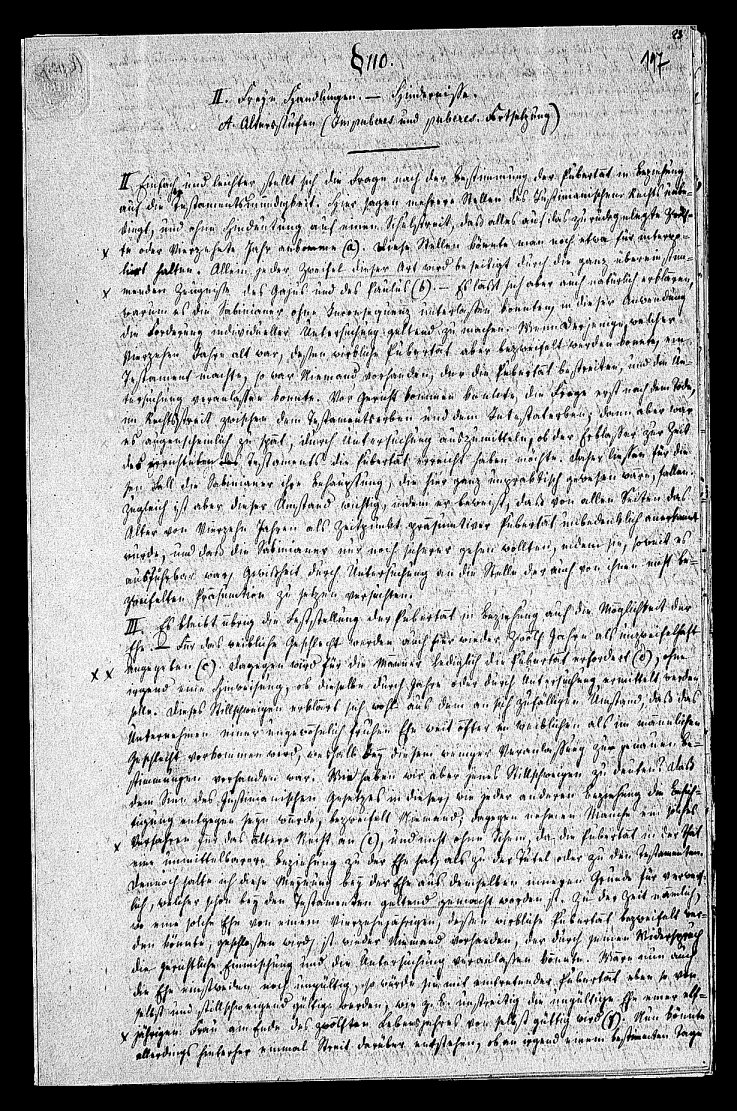 23
197
§ 110.
II. Freye Handlungen. — Hindernisse.
A. Altersstufen (Impuberes und puberes. Fortsetzung)
II Einfacher und leichter stellt sich die Frage nach der Bestimmung der Pubertät in Beziehung
auf die Testamentsmündigkeit. Hier sagen mehrere Stellen des Justinianischen Rechts unbe-
dingt, und ohne Hindeutung auf einen Schulstreit, daß alles auf das zurückgelegte Zwölf-
te oder Vierzehnte Jahr ankomme (a). Diese Stellen könnte man noch etwa für interpo-
lirt halten. Allein jeder Zweifel dieser Art wird beseitigt durch die ganz übereinstim-
menden Zeugnisse des Gajus und des Paulus (b). — Es läßt sich aber auch natürlich erklären,
warum es die Sabinianer ohne Inconsequenz unterlassen konnten, in dieser Anwendung
die Forderung individueller Untersuchung geltend zu machen. Wenn Derjenige, welcher
Vierzehen Jahre alt war, dessen wirkliche Pubertät aber bezweifelt werden konnte, ein
Testament machte, so war Niemand vorhanden, der die Pubertät bestreiten, und die Un-
tersuchung veranlassen konnte. Vor Gericht kommen konnte die Frage erst nach dem Tode,
im Rechtsstreit zwischen dem Testamentserben und dem Intestaterben; dann aber war
es augenscheinlich zu spät, durch Untersuchung auszumitteln, ob der Erblasser zur Zeit
des errichteten Testaments die Pubertät erreicht haben möchte. Daher ließen für die-
sen Fall die Sabinianer ihre Behauptung, die hier ganz unpraktisch gewesen wäre, fallen.
Zugleich ist aber dieser Umstand wichtig, indem er beweist, daß von allen Seiten das
Alter von Vierzehn Jahren als Zeitpunkt präsumtiver Pubertät unbedenklich anerkannt
wurde, und daß die Sabinianer nur noch sicherer gehen wollten, indem sie, soweit es
ausführbar war, Gewißheit durch Untersuchung an die Stelle der auch von ihnen nicht be-
zweifelten Präsumtion zu setzen versuchten.
III. Es bleibt übrig die Feststellung der Pubertät in Beziehung auf die Möglichkeit der
Ehe. — Für das weibliche Geschlecht werden auch hier wieder Zwölf Jahre als unzweifelhaft
angegeben (c). Dagegen wird für die Männer lediglich die Pubertät erfordert (d), ohne
irgend eine Hinweisung, ob dieselbe durch Jahre oder durch Untersuchung ermittelt werden
solle. Dieses Stillschweigen erklärt sich wohl aus dem an sich zufälligen Umstand, daß das
Unternehmen einer ungewöhnlich frühen Ehe weit öfter im weiblichen als im männlichen
Geschlecht vorkommen wird, weshalb bey diesem weniger Veranlassung zur genauen Be-
stimmung vorhanden war. Wie haben wir aber jenes Stillschweigen zu deuten? Daß
dem Sinn des Justinianischen Gesetzes in dieser, wie jeder anderen Beziehung die Besich-
tigung entgegen seyn würde, bezweifelt Niemand; dagegen nehmen Manche ein solches
Verfahren für das ältere Recht an (e), und nicht ohne Schein, da die Pubertät in der That
eine unmittelbarere Beziehung zu der Ehe hat, als zu der Tutel oder zu den Testamenten.
Dennoch halte ich diese Meynung bey der Ehe aus demselben inneren Grunde für verwerf-
lich, welcher schon bey den Testamenten geltend gemacht worden ist. Zu der Zeit nämlich,
wo eine solche Ehe von einem Vierzehnjährigen, dessen wirkliche Pubertät bezweifelt wer-
den könnte, geschlossen wird, ist wieder Niemand vorhanden, der durch seinen Widerspruch
die gerichtliche Einmischung und die Untersuchung veranlassen könnte. Wäre nun auch
die Ehe einstweilen noch ungültig, so würde sie mit eintretender Pubertät eben so von
selbst und stillschweigend gültig werden, wie z. B. unstreitig die ungültige Ehe einer elf-
jährigen Frau am Ende des zwölften Lebensjahres von selbst gültig wird (f). Nun könnte
allerdings hinterher einmal Streit darüber entstehen, ob an irgend einem bestimmten Tage